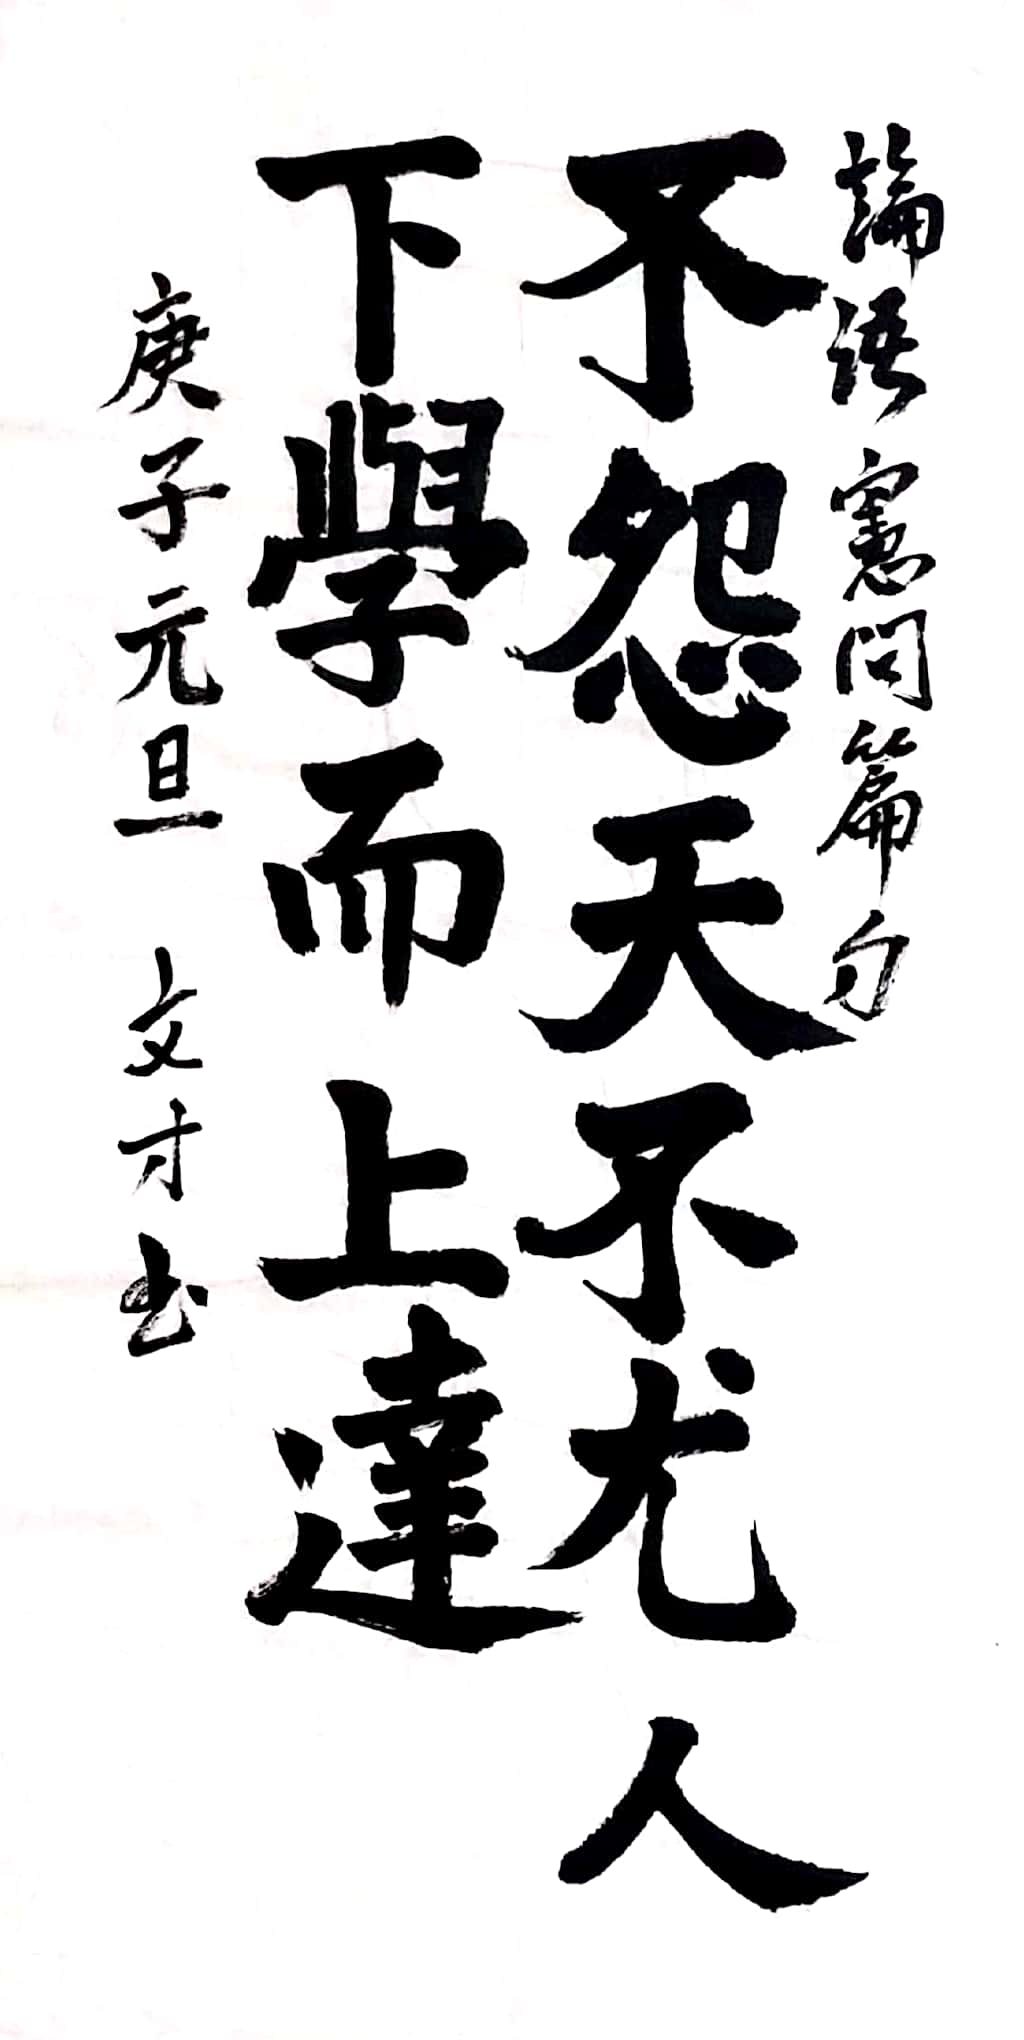 論語憲問篇句
不怨天不尤人
下學而上達
庚子元旦 文才书